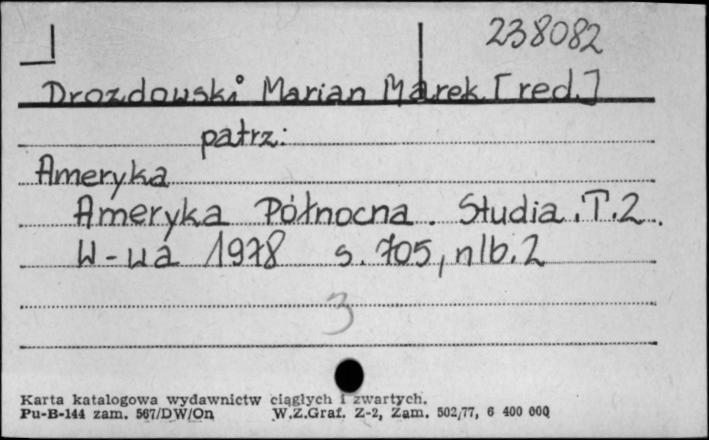 238082
Drozdowski Marian Marek [red.]
patrz:
Ameryka
Ameryka Północna. Studia. T.2.
W-wa 1978 s. 705, nlb. 2
3
Karta katalogowa wydawnictw ciągłych i zwartych.
Pu-B-144 zam. 567/DW/On W.Z.Graf. Z-2, Zam. 502/77, 6 400 000